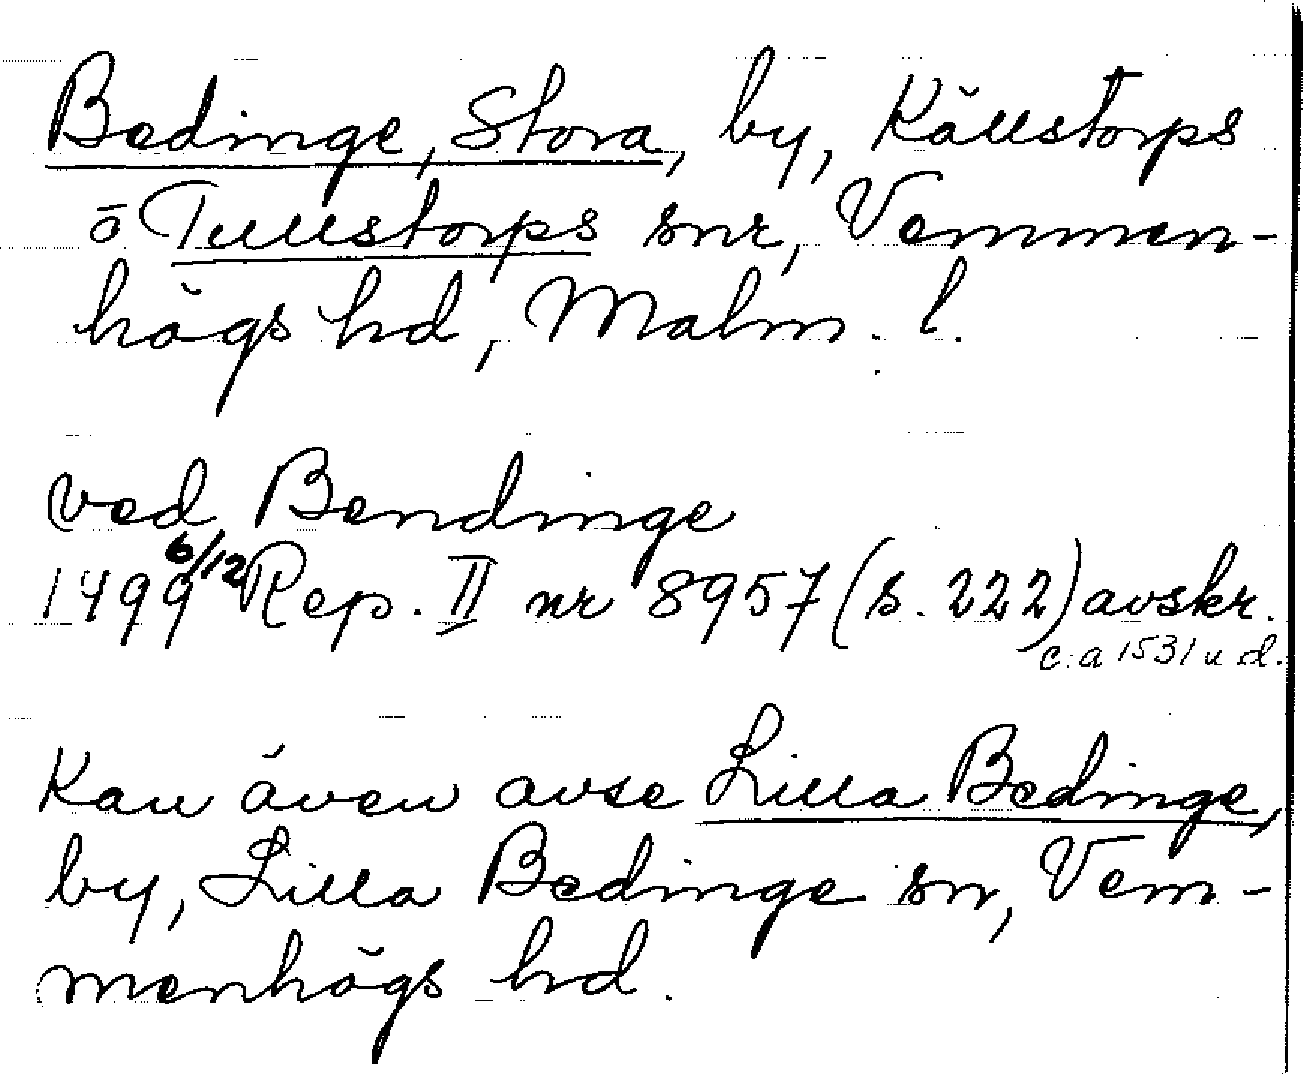 Bedinge, Stora, by, Källstorps
o Tullstorps snr, Vemmen-
högs hd, Malm. l.
ved Bendinge
1499 6/12 Rep. II nr 8957 (s. 222) avskr.
c:a 1531 u d.
Kan även avse Lilla Bedinge,
by, Lilla Bedinge sn, Vem-
menhögs hd.